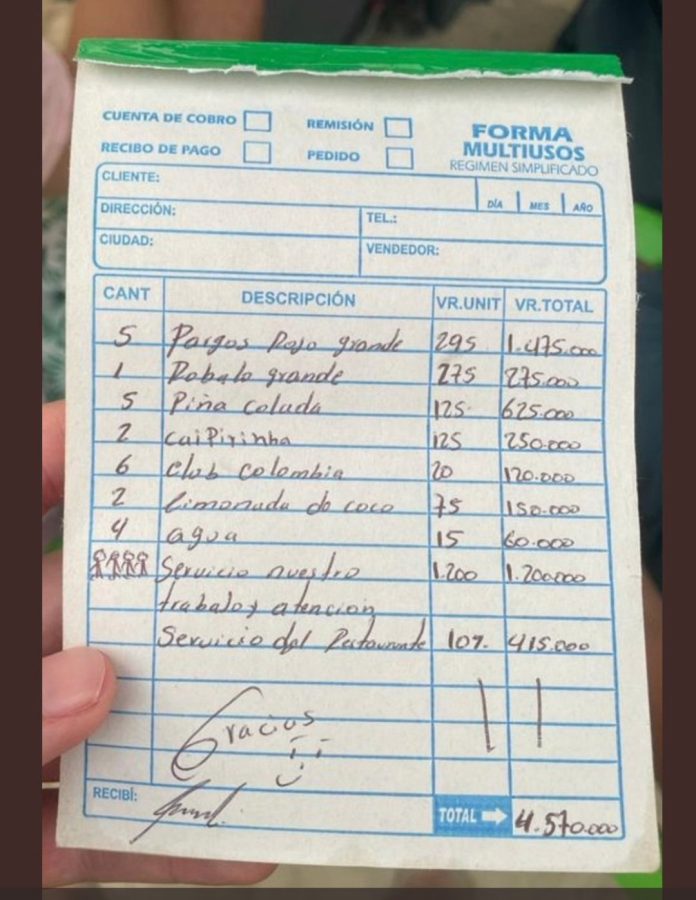 CUENTA DE COBRO REMISIÓN
RECIBO DE PAGO PEDIDO
FORMA
MULTIUSOS
REGIMEN SIMPLIFICADO
CLIENTE:
DÍA MES AÑO
DIRECCIÓN: TEL.:
CIUDAD: VENDEDOR:
CANT DESCRIPCIÓN VR.UNIT VR.TOTAL
5 Pargos Rojo grande 295 1.475.000
1 Robalo grande 275 275.000
5 Piña colada 125 625.000
2 caipirinha 125 250.000
6 club colombia 20 120.000
2 limonada de coco 75 150.000
4 agua 15 60.000
Servicio nuestro 1.200 1.200.000
trabajo y atencion
Servicio del Restaurante 10% 415.000
Gracias
RECIBÍ:
TOTAL 4.570.000